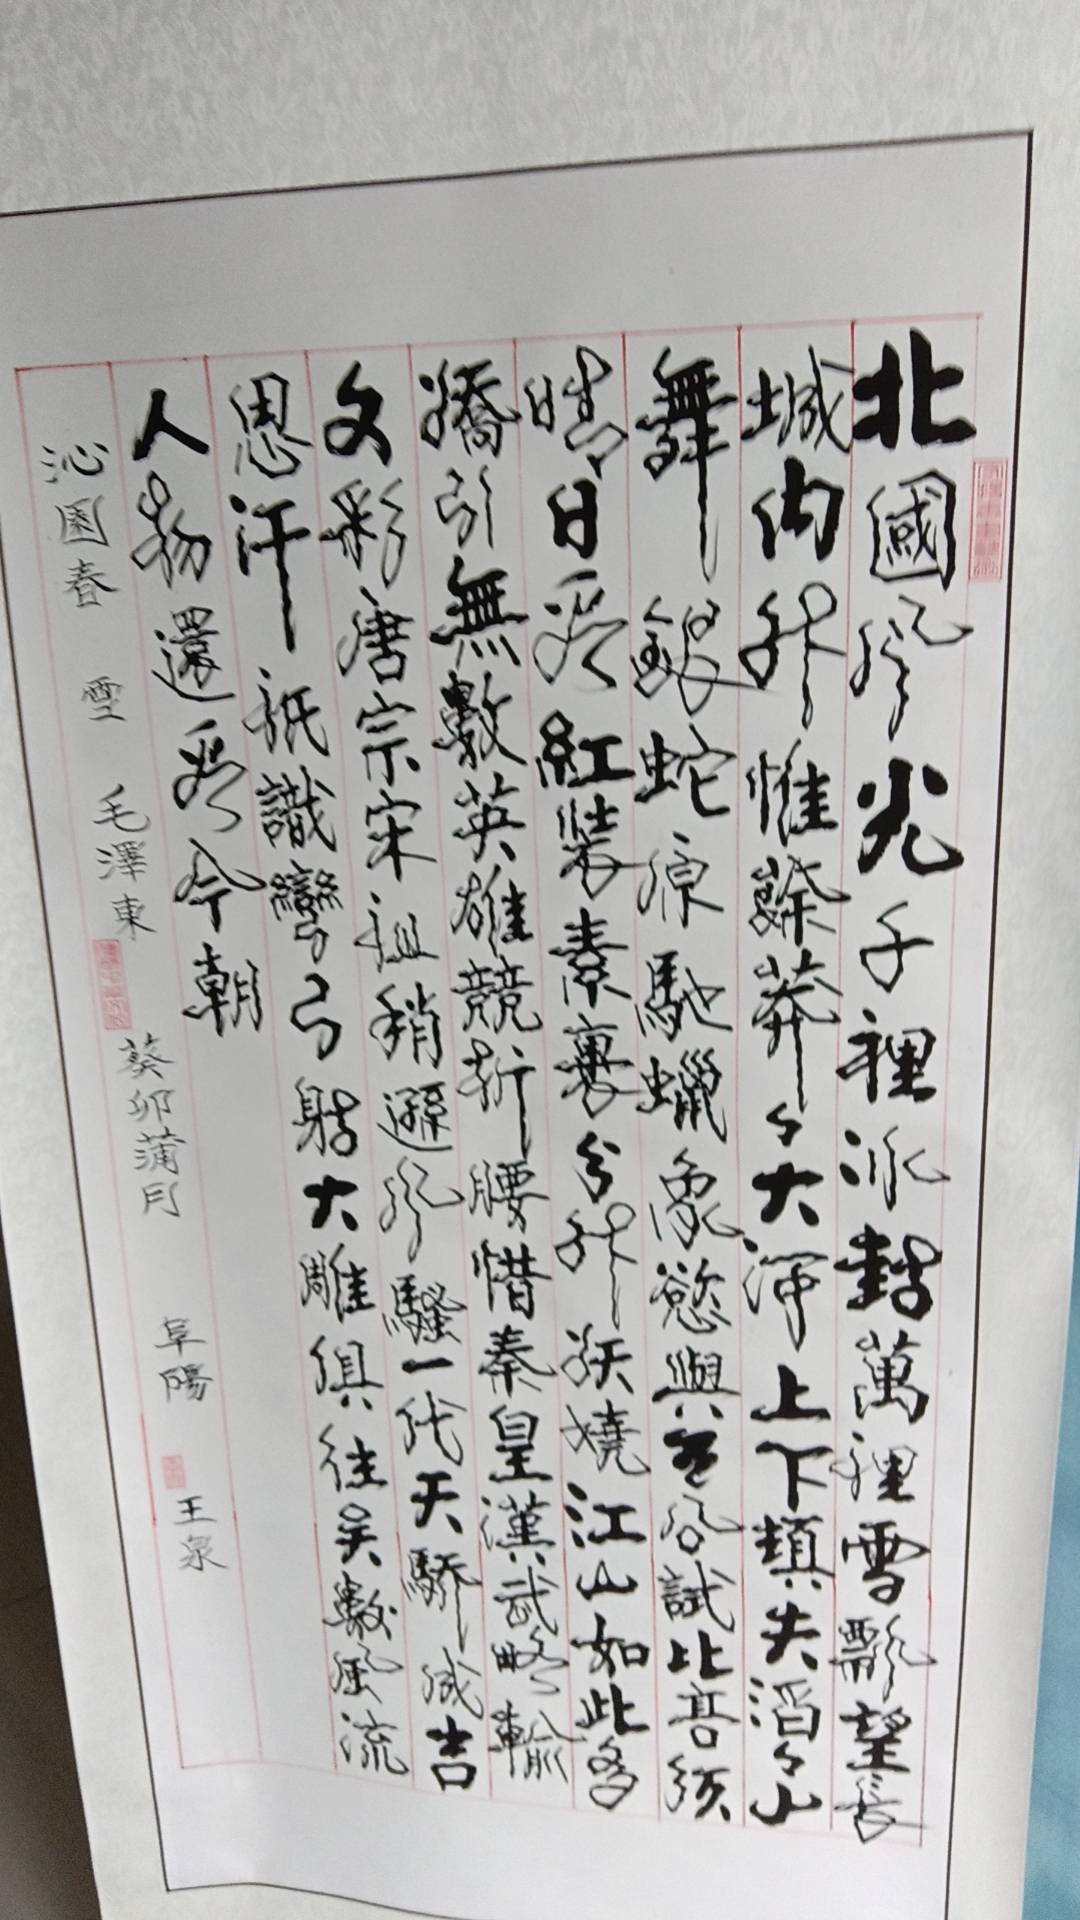 北國風光千裡冰封萬裡雪飄望長
城內外惟餘莽々大河上下頓失滔々山
舞銀蛇原馳蠟象慾與天公試比高須
晴日看紅裝素裹分外妖嬈江山如此多
嬌引無數英雄競折腰惜秦皇漢武略輸
文彩唐宗宋祖稍遜風騷一代天驕成吉
思汗祇識彎弓射大雕俱往矣數風流
人物還看今朝
沁園春 雪 毛澤東 葵卯蒲月 阜陽 王泉